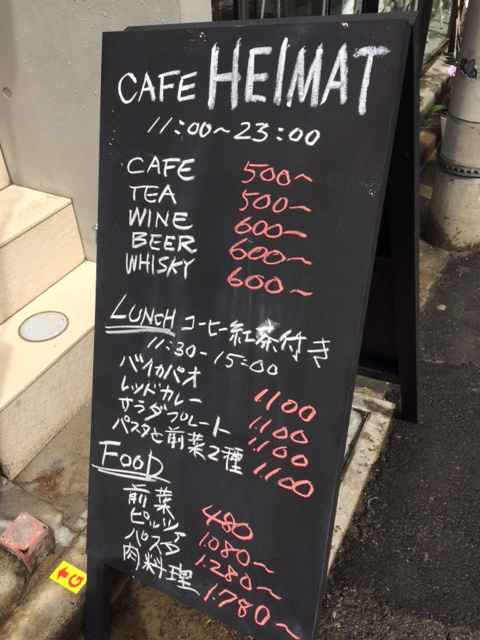 CAFE HEIMAT
11:00~23:00
CAFE 500~
TEA 500~
WINE 600~
BEER 600~
WHISKY 600~
LUNCH コーヒー紅茶付き
11:30-15:00
ガイカパオ 1.100
レッドカレー 1.100
サラダプレート 1.100
パスタと前菜2種 1.100
FOOD
前菜 480
ピルツァ 1.080~
パスタ 1.280~
肉料理 1.780~